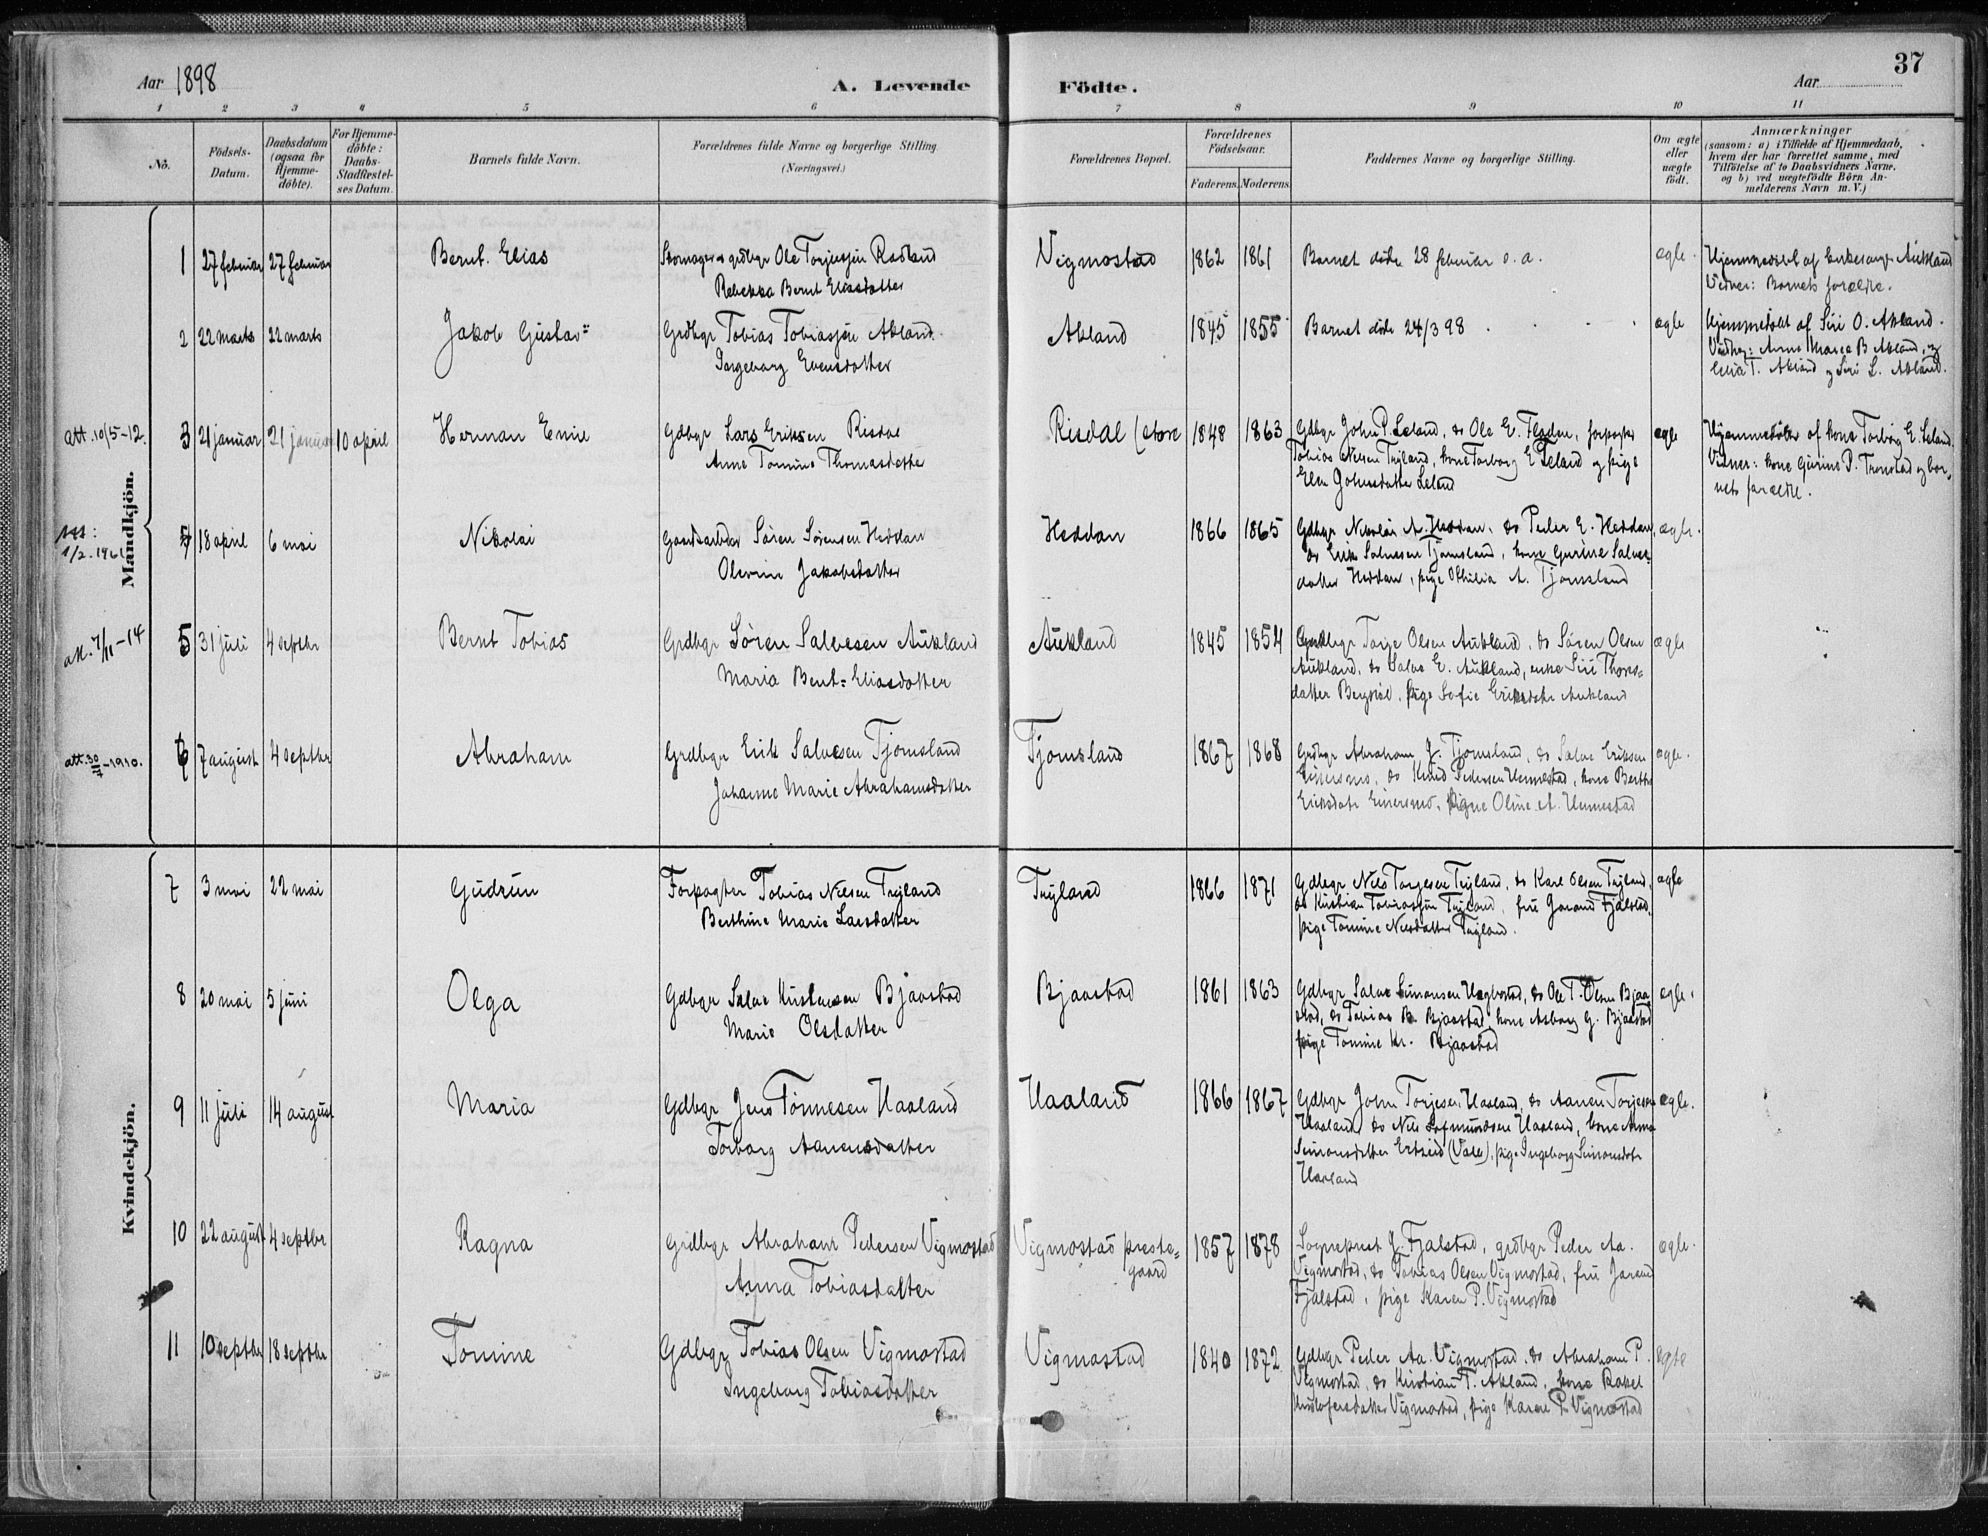 Aar 1898
A. Levende Födte.
Aar
37
1 2 3 4 5 6 7 8 9 10 11
No.
Födsels-Datum.
Daabsdatum (ogsaa for Hjemme-döbte).
For Hjemme-döbte: Daabs-Stadfæstelses Datum.
Barnets fulde Navn.
Forældrenes fulde Navne og borgerlige Stilling (Næringsvei.)
Forældrenes Bopæl.
Forældrenes Födselsaar.
Faderens. Moderens.
Faddernes Navne og borgerlige Stilling.
Om ægte eller uægte födt.
Anmærkninger
(saasom: a) i Tilfælde af Hjemmedaab, hvem der har forrettet samme, med Tilföielse af to Daabsvidners Navne, og b) ved uægtefödte Börn Anmelderens Navn m. V.)
Mandkjön.
1 27 februar 27 februar Bernt Elias
Skomager & grdbgr Ole Torjussen Rødland
Rebekka Bernt Eliasdatter
Vigmostad 1862 1861 Barnet døde 28 februar s. a. ægte
Hjemmedøbt af kirkesanger Aukland
Vidner: Barnets forældre.
2 22 marts 22 marts Jakob Gustav
Grdbgr Tobias Tobiassen Akland
Ingeborg Evensdatter
Akland 1845 1855 Barnet døde 24/3 98 ægte
Hjemmedøbt af Siri O. Akland.
Anne Maria B Akland,
T. Akland og Siri L. Akland.
att. 10/5-12.
3 21 januar 21 januar 10 april Herman Emil
Gdbgr Lars Eriksen Risdal
Anne Tomine Thomasdatter
Risdal (store 1848 1863
Gdbgr John P. Leland, do Ole E. Fladen, forpagter
Tobias Nilsen Tryland, kone Torborg E Leland og pige
Elen Johnsdatter Leland
ægte
Hjemmedøbt af kone Torborg E. Leland.
Vidner: kone Gurine P. Tronstad og bar-
nets forældre.
1/2.1961
4 18 april 6 mai Nikolai
Gaardsarbeider Søren Sørensen Heddan
Olevine Jakobsdatter
Heddan 1866 1865
Gdbgr Nikolai A. Heddan, do Peder E. Heddan,
do Erik Salvesen Tjomsland, kone Gurine Salves-
datter Heddan, pige Othilia A. Tjomsland
ægte.
att. 7/11-14
5 31 juli 4 septbr Bernt Tobias
Grdbgr Søren Salvesen Aukland
Maria Bent-Eliasdatter
Aukland 1845 1854
Grdbgr Torje Olsen Aukland, do Søren Olsen
Aukland, do Salve E. Aukland, enke Siri Thores-
datter Bergsløl, pige Sofie Eriksdatr Aukland
ægte
att. 30/7-1910.
6 7 august 4 septbr Abraham
Grdbgr Erik Salvesen Tjomsland
Johanne Marie Abrahamsdatter
Tjomsland 1867 1868
Grdbgr Abraham J. Tjomsland, do Salve Eriksen
Einersmo, do Knud Pedersen Unnestad, kone Berthe
Eriksdatr Einersmo, pigne Oline A. Unnestad
ægte.
Kvindekjön.
7 3 mai 22 mai Gudrun
Forpagter Tobias Nilsen Tryland
Berthine Marie Larsdatter
Tryland 1866 1871
Gdbgr Nils Torjesen Tryland, do Karl Olsen Tryland,
do Kristian Tobiassen Tryland, fru Jorand Fjalstad,
pige Tomine Nilsdatter Tryland.
ægte
8 20 mai 5 juni Olga
Gdbgr Salve Kristensen Bjaastad
Marie Olsdatter
Bjaastad 1861 1863
Gdbgr Salve Simonsen Hægbostad, do Ole T. Olsen Bjaa-
stad, do Tobias B. Bjaastad, kone Asborg G. Bjaastad
pige Tomine Kr. Bjaastad
ægte.
9 11 juli 14 august Maria
Gdbgr Jens Tønnesen Haaland
Torborg Aanensdatter
Haaland 1866 1867
Gdbgr John Torjesen Haaland, do Aanen Torjesen
Haaland, do Nils Sigmundsen Haaland, kone Anna
Simonsdatter Ertzeid (Valle), pige Ingeborg Simonsdatr
Haaland
ægte.
10 22 august 4 septbr Ragna
Grdbgr Abraham Pedersen Vigmostad
Anna Tobiasdatter
Vigmostad preste-
gaard
1857 1878
Sogneprest J. Fjalstad, grdbgr Peder Aa.
Vigmostad, do Tobias Olsen Vigmostad, fru Jorand
Fjalstad, pige Karen P. Vigmostad
ægte.
11 10 septbr 18 septbr Tomine
Gdbgr Tobias Olsen Vigmostad
Ingeborg Tobiasdatter
Vigmostad 1840 1872
Gdbgr Peder Aa. Vigmostad, do Abraham P.
Vigmostad, do Kristian T. Akland, kone Rakel
Kristofersdatter Vigmostad, pige Karen P. Vigmostad
ægte